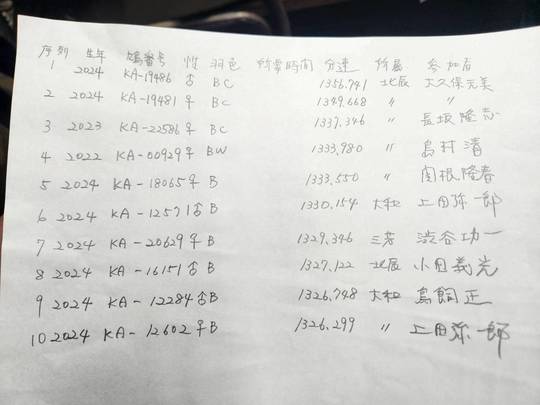 序列 生年 鳩番号 性 羽色 所要時間 分速 所属 参加者
1 2024 KA-19486 ♂ BC 1356.741 北辰 大久保元美
2 2024 KA-19481 ♀ BC 1349.668 〃 〃
3 2023 KA-22586 ♀ BC 1337.346 〃 長坂隆志
4 2022 KA-00929 ♀ BW 1333.980 〃 島村清
5 2024 KA-18065 ♀ B 1333.550 〃 関根隆春
6 2024 KA-12571 ♂ B 1330.154 大和 上田弥一郎
7 2024 KA-20629 ♀ B 1329.346 三芳 渋谷功一
8 2024 KA-16151 ♂ B 1327.122 北辰 小田義光
9 2024 KA-12284 ♂ B 1326.748 大和 鳥飼正
10 2024 KA-12602 ♀ B 1326.299 〃 上田弥一郎